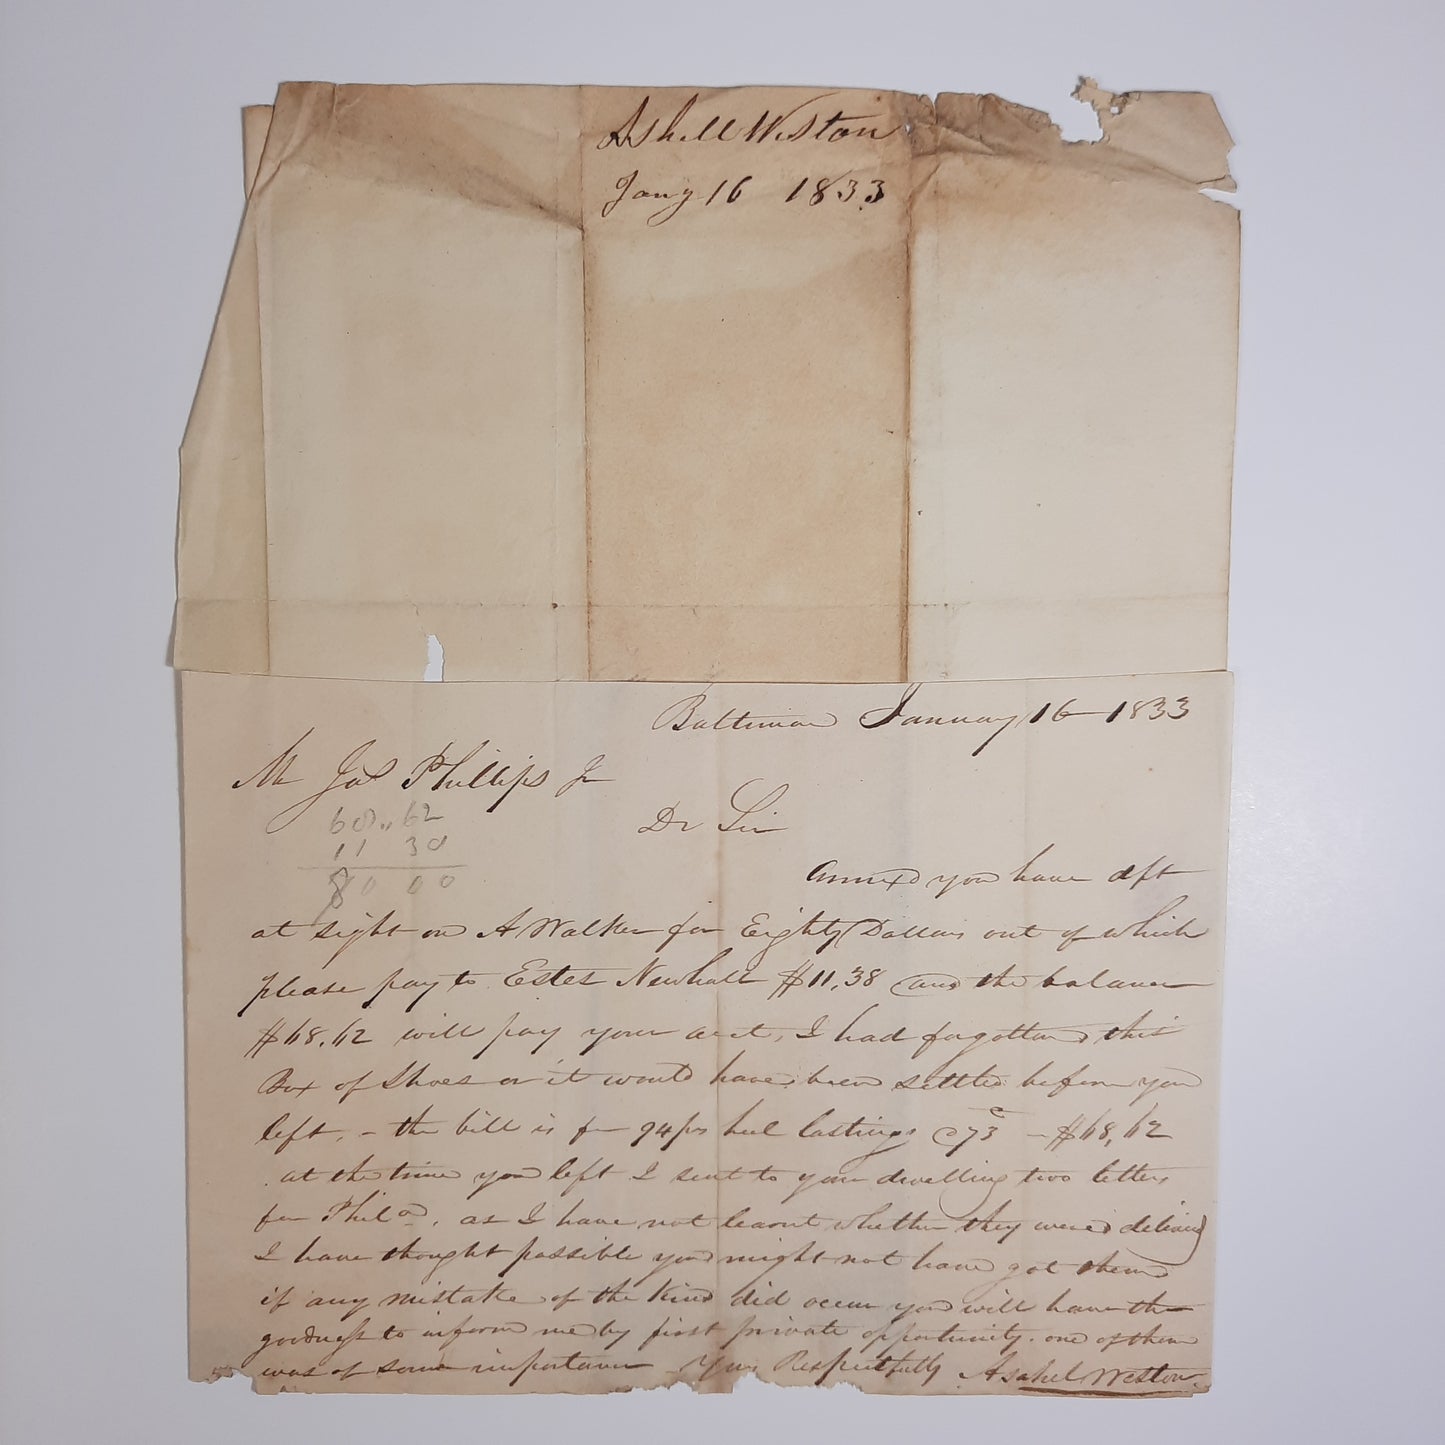 Ashell Weston
Jany 16 1833
Baltimore January 16 1833
Mr Jas Phillips Jr
68,, 62
11 38
80 00
Dr Sir
Annexd you have dft
at sight on A Walker for Eighty Dollars out of which
please pay to Estes Newhall $11,38 and the balance
$68,62 will pay your acct, I had forgotten this
Box of Shoes or it would have been settled before you
left, - the bill is for 94 prs heel lastings @ 73c - $68,62
at the time you left I sent to your dwelling two letters
for Phila, as I have not learnt whether they were delivered
I have thought possible you might not have got them
if any mistake of the kind did occur you will have the
goodness to inform me by first private opportunity. one of them
was of some importance Yours Respectfully Asahel Weston